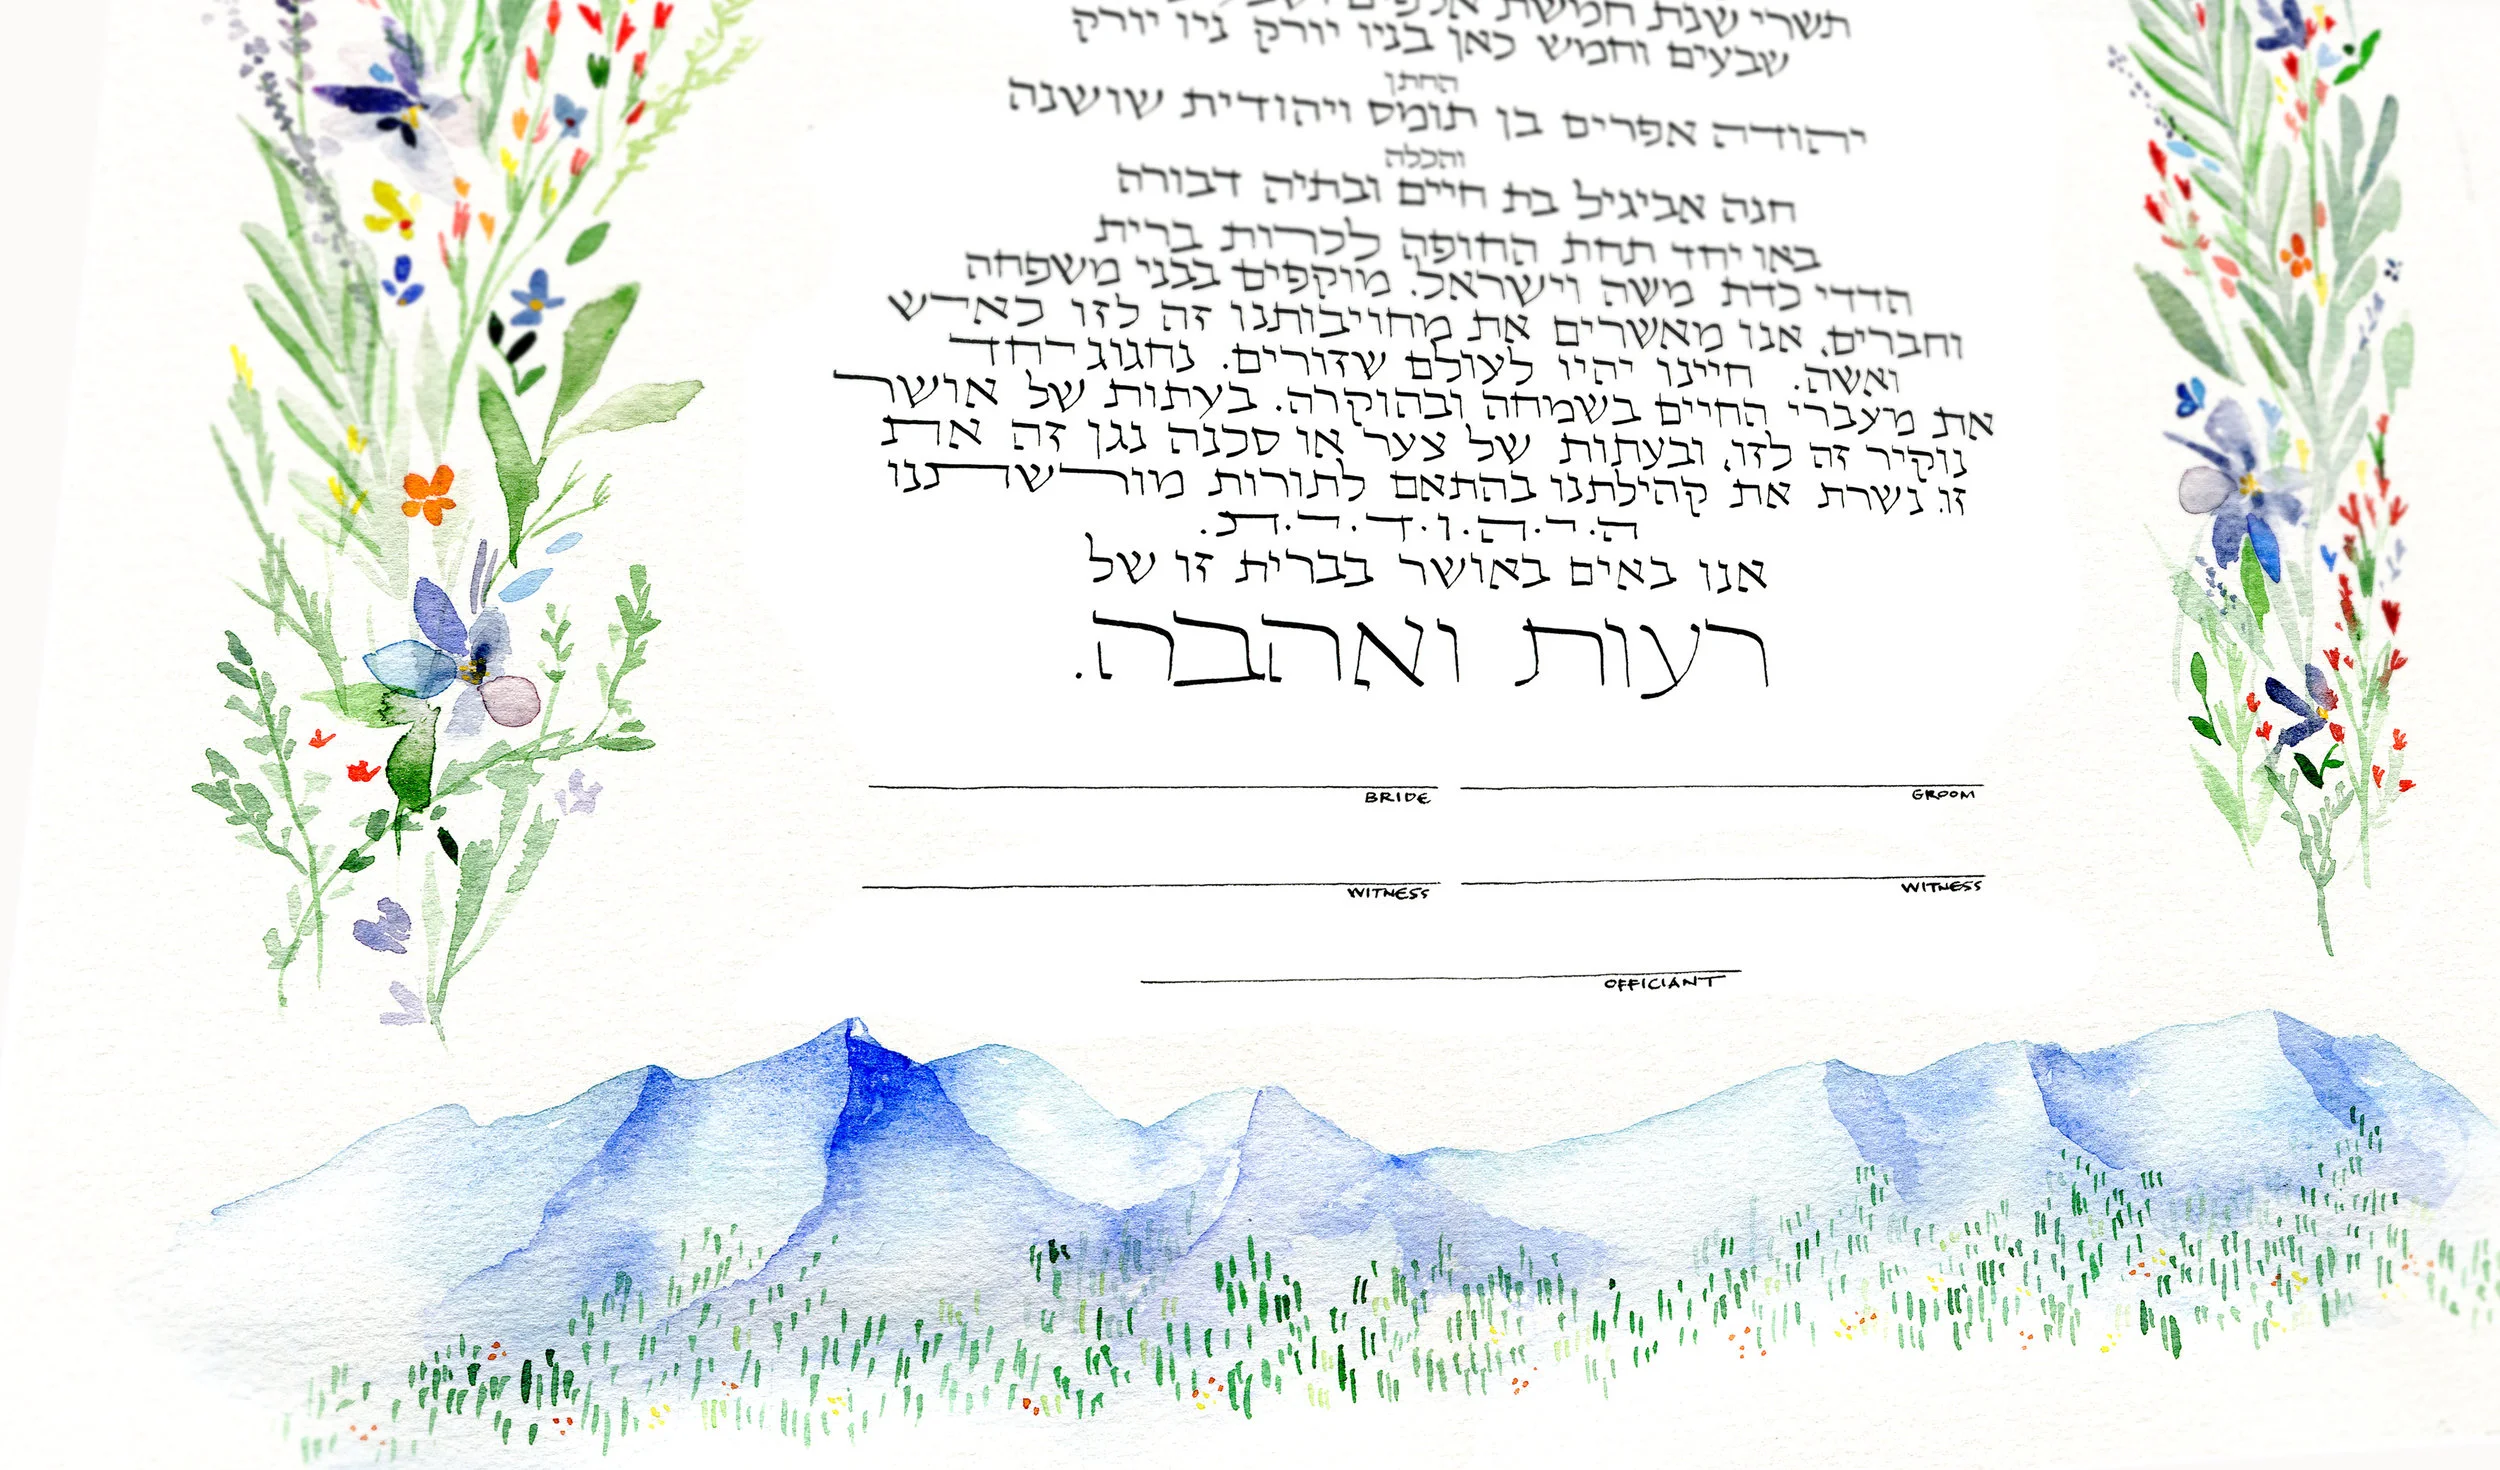 תשרי שנת חמשת אלפים
שבעים וחמש כאן בניו יורק ניו יורק
החתן
יהודה אפרים בן תומס ויהודית שושנה
והכלה
חנה אביגיל בת חיים ובתיה דבורה
באו יחד תחת החופה לכרות ברית
הדדי כדת משה וישראל. מוקפים בבני משפחה
וחברים, אנו מאשרים את מחויבותנו זה לזו כאיש
ואשה. חיינו יהיו לעולם שזורים. נחגוג יחד
את מעברי החיים בשמחה ובהוקרה. בעתות של אושר
נוקיר זה לזו, ובעתות של צער או סכנה נגן זה את
זו. נשרת את קהילתנו בהתאם לתורות מורשתנו
ה.י.ה.ו.ד.י.ת.
אנו באים באושר בברית זו של
רעות ואהבה.
BRIDE GROOM
WITNESS WITNESS
OFFICIANT